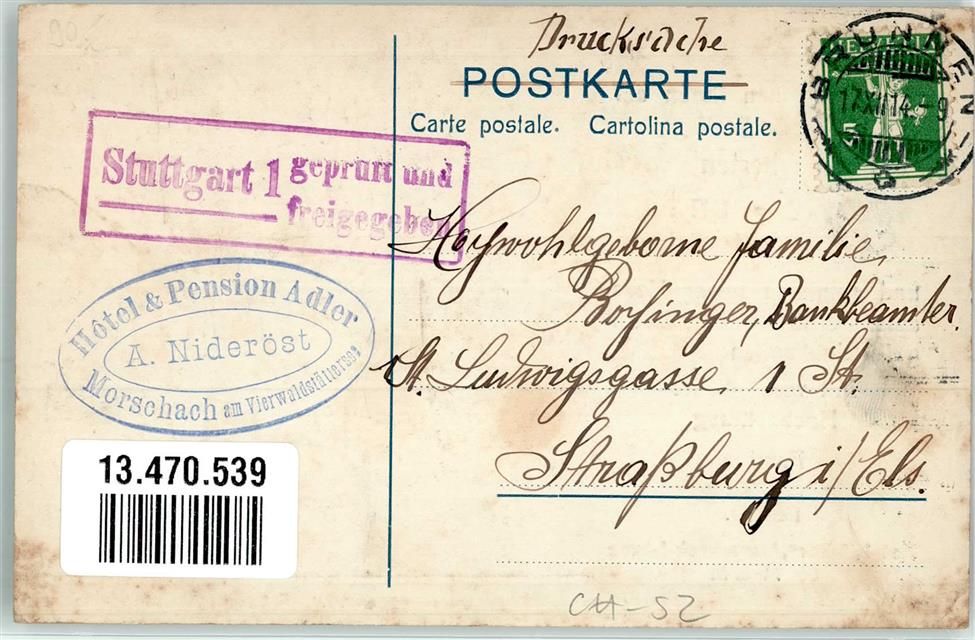 Drucksache
POSTKARTE
Carte postale. Cartolina postale.
BRUNNEN
17.XII.14.-9
HELVETIA
5
Stuttgart 1 geprüft und
freigegeben
Hôtel & Pension Adler
A. Nideröst
Morschach am Vierwaldstättersee
Hochwohlgeborne Familie
Bossinger, Bankbeamter.
St. Ludwigsgasse 1 St.
Straßburg i/Els.
13.470.539
CH-SZ